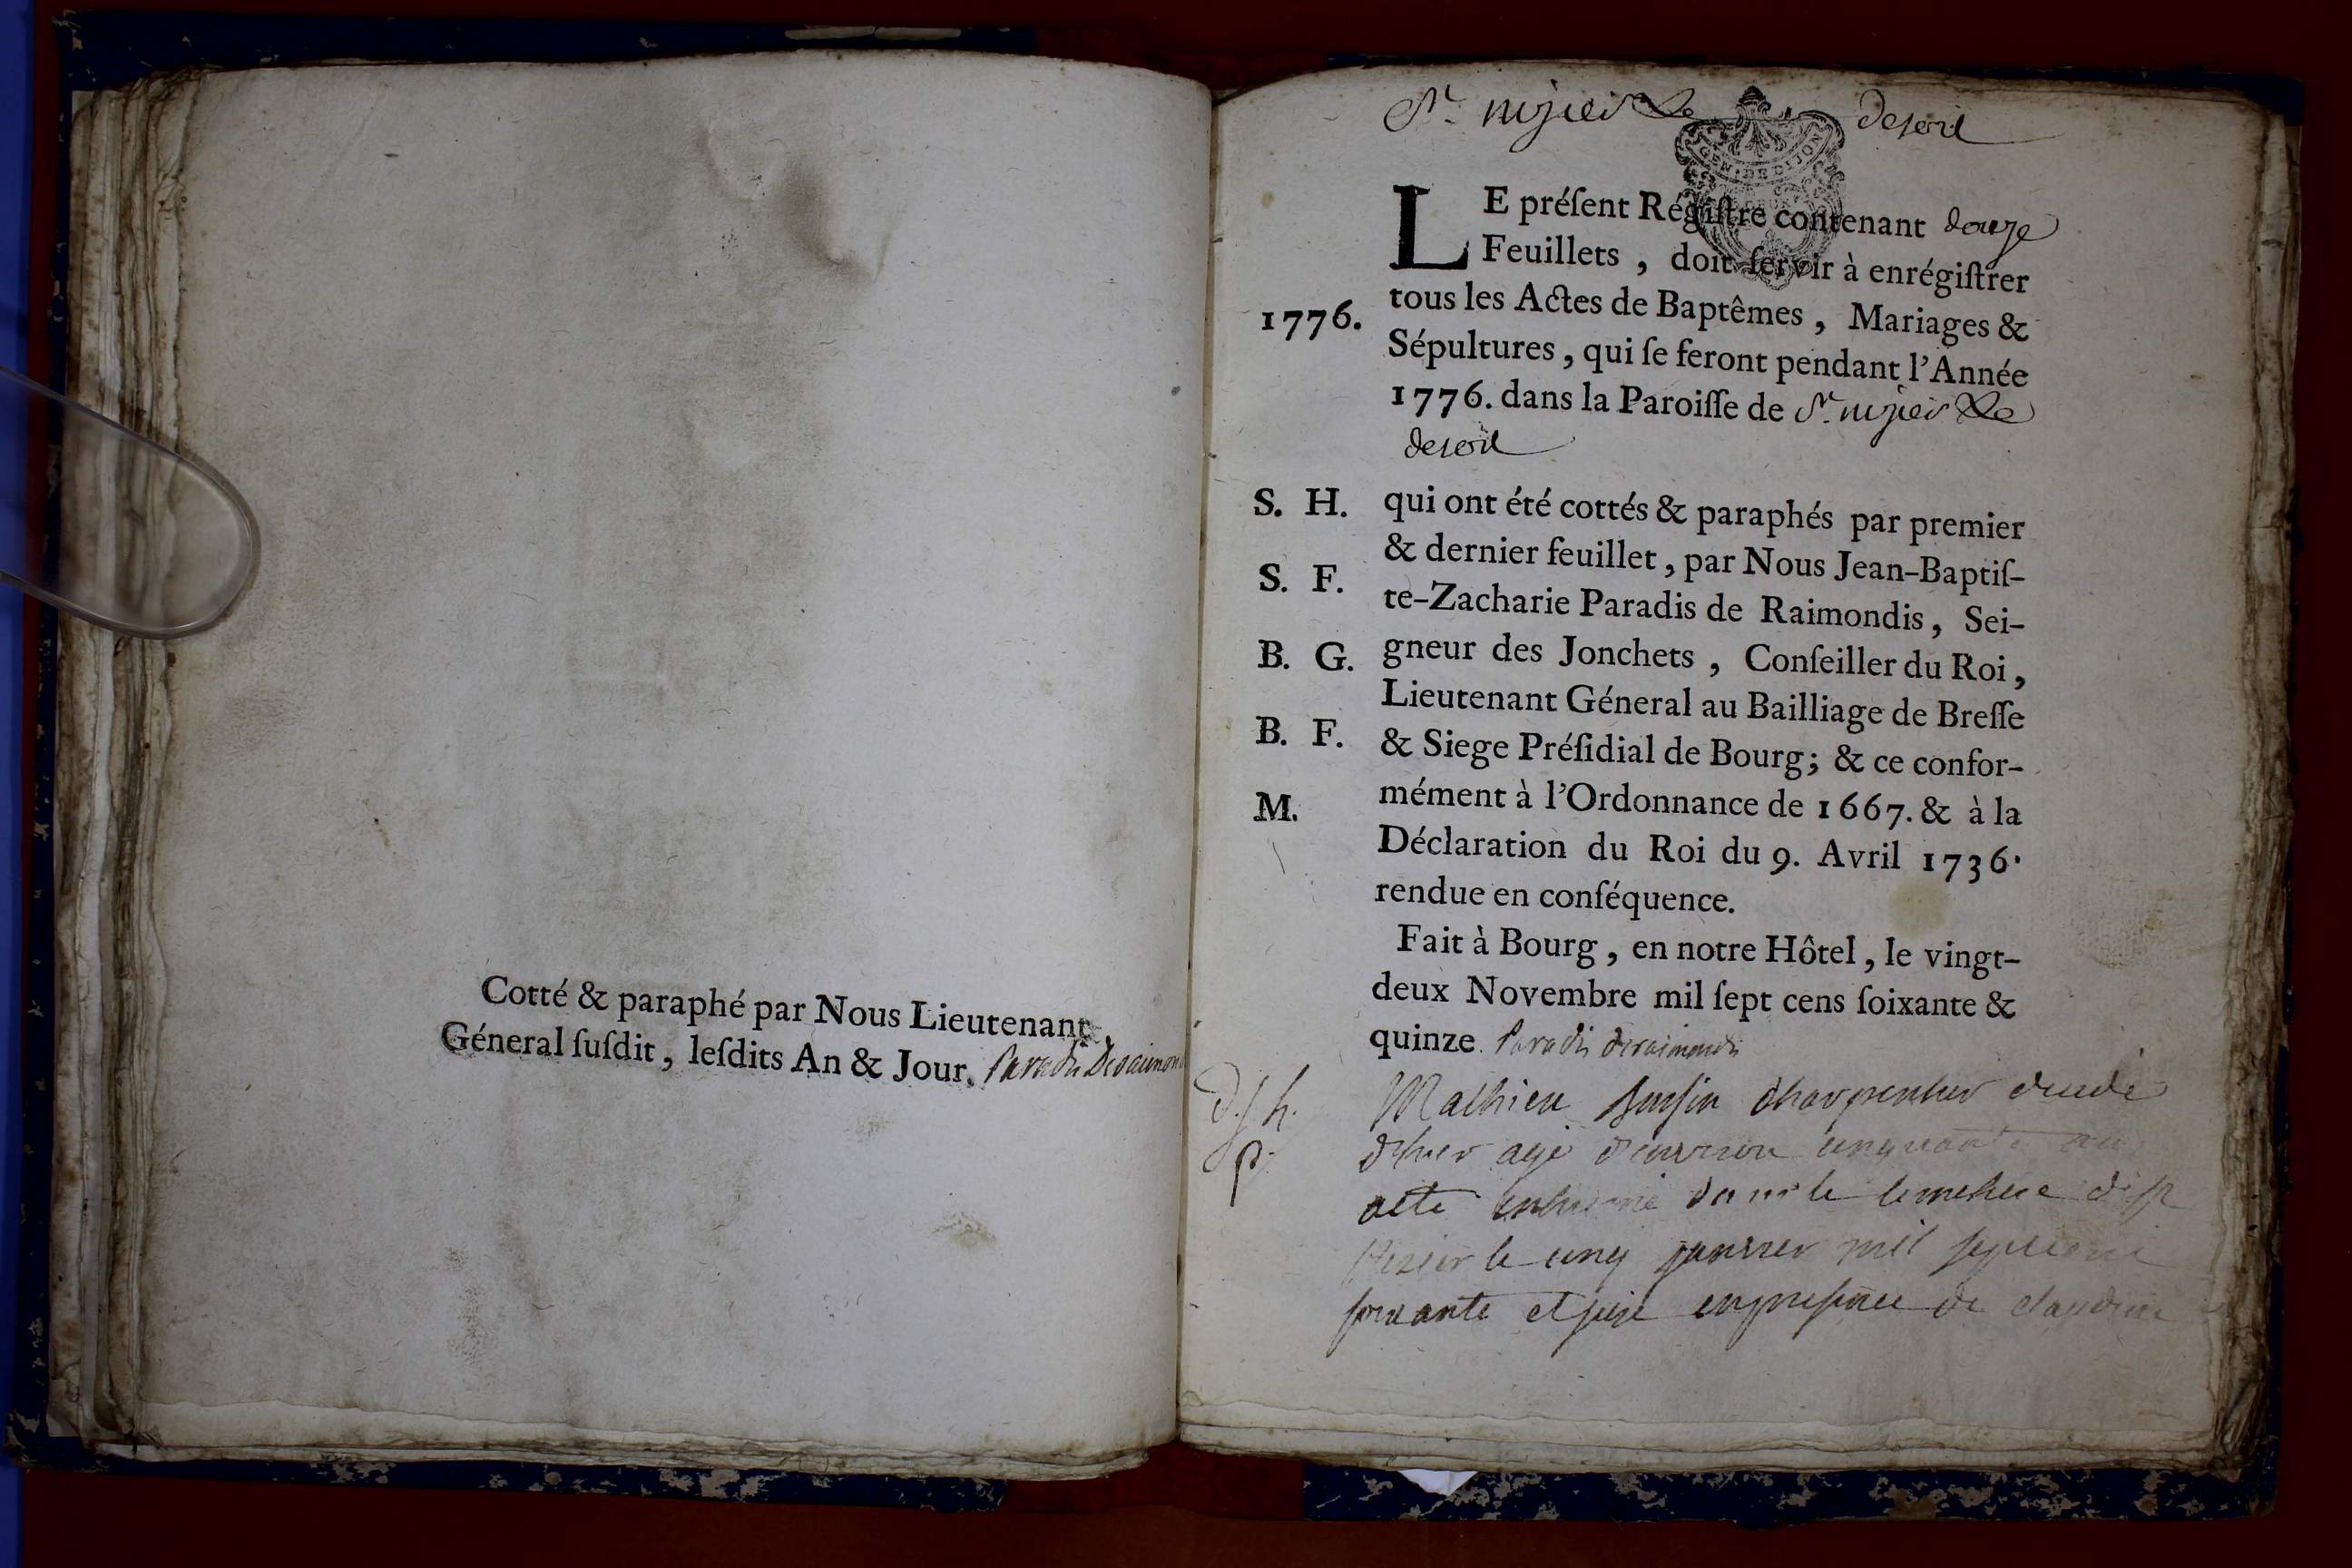 Cotté & paraphé par Nous Lieutenant
Géneral ſuſdit, leſdits An & Jour. Paradis Deraimon
St. nizier Le desert
GEN. DE DIJON
LE préſent Régiſtre contenant douze
Feuillets, doit ſervir à enrégiſtrer
tous les Actes de Baptêmes, Mariages &
1776.
Sépultures, qui ſe feront pendant l'Année
1776. dans la Paroiſſe de St. nizier Le
desert
S. H. qui ont été cottés & paraphés par premier
& dernier feuillet, par Nous Jean-Baptiſ-
S. F. te-Zacharie Paradis de Raimondis, Sei-
B. G. gneur des Jonchets, Conſeiller du Roi,
Lieutenant Géneral au Bailliage de Breſſe
B. F. & Siege Préſidial de Bourg; & ce confor-
M. mément à l'Ordonnance de 1667. & à la
Déclaration du Roi du 9. Avril 1736.
rendue en conſéquence.
Fait à Bourg, en notre Hôtel, le vingt-
deux Novembre mil ſept cens ſoixante &
quinze. Paradis deraimondis
Mathieu charpentier decede
d'hier agé d'environ cinquante ans
a eté inhumé dans le cimetiere de st
nizier le cinq janvier mil sept cent
soixante et seize en presence de claudine